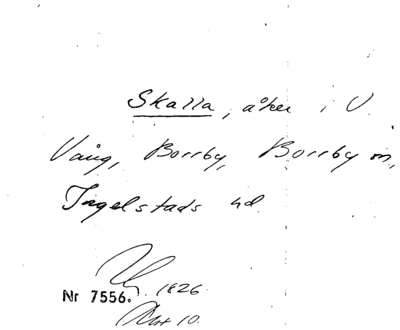 Skalla, åker i V.
Vång, Borrby, Borrby sn,
Ingelstads hd.
1826.
Nr 7556.
Akt 10.